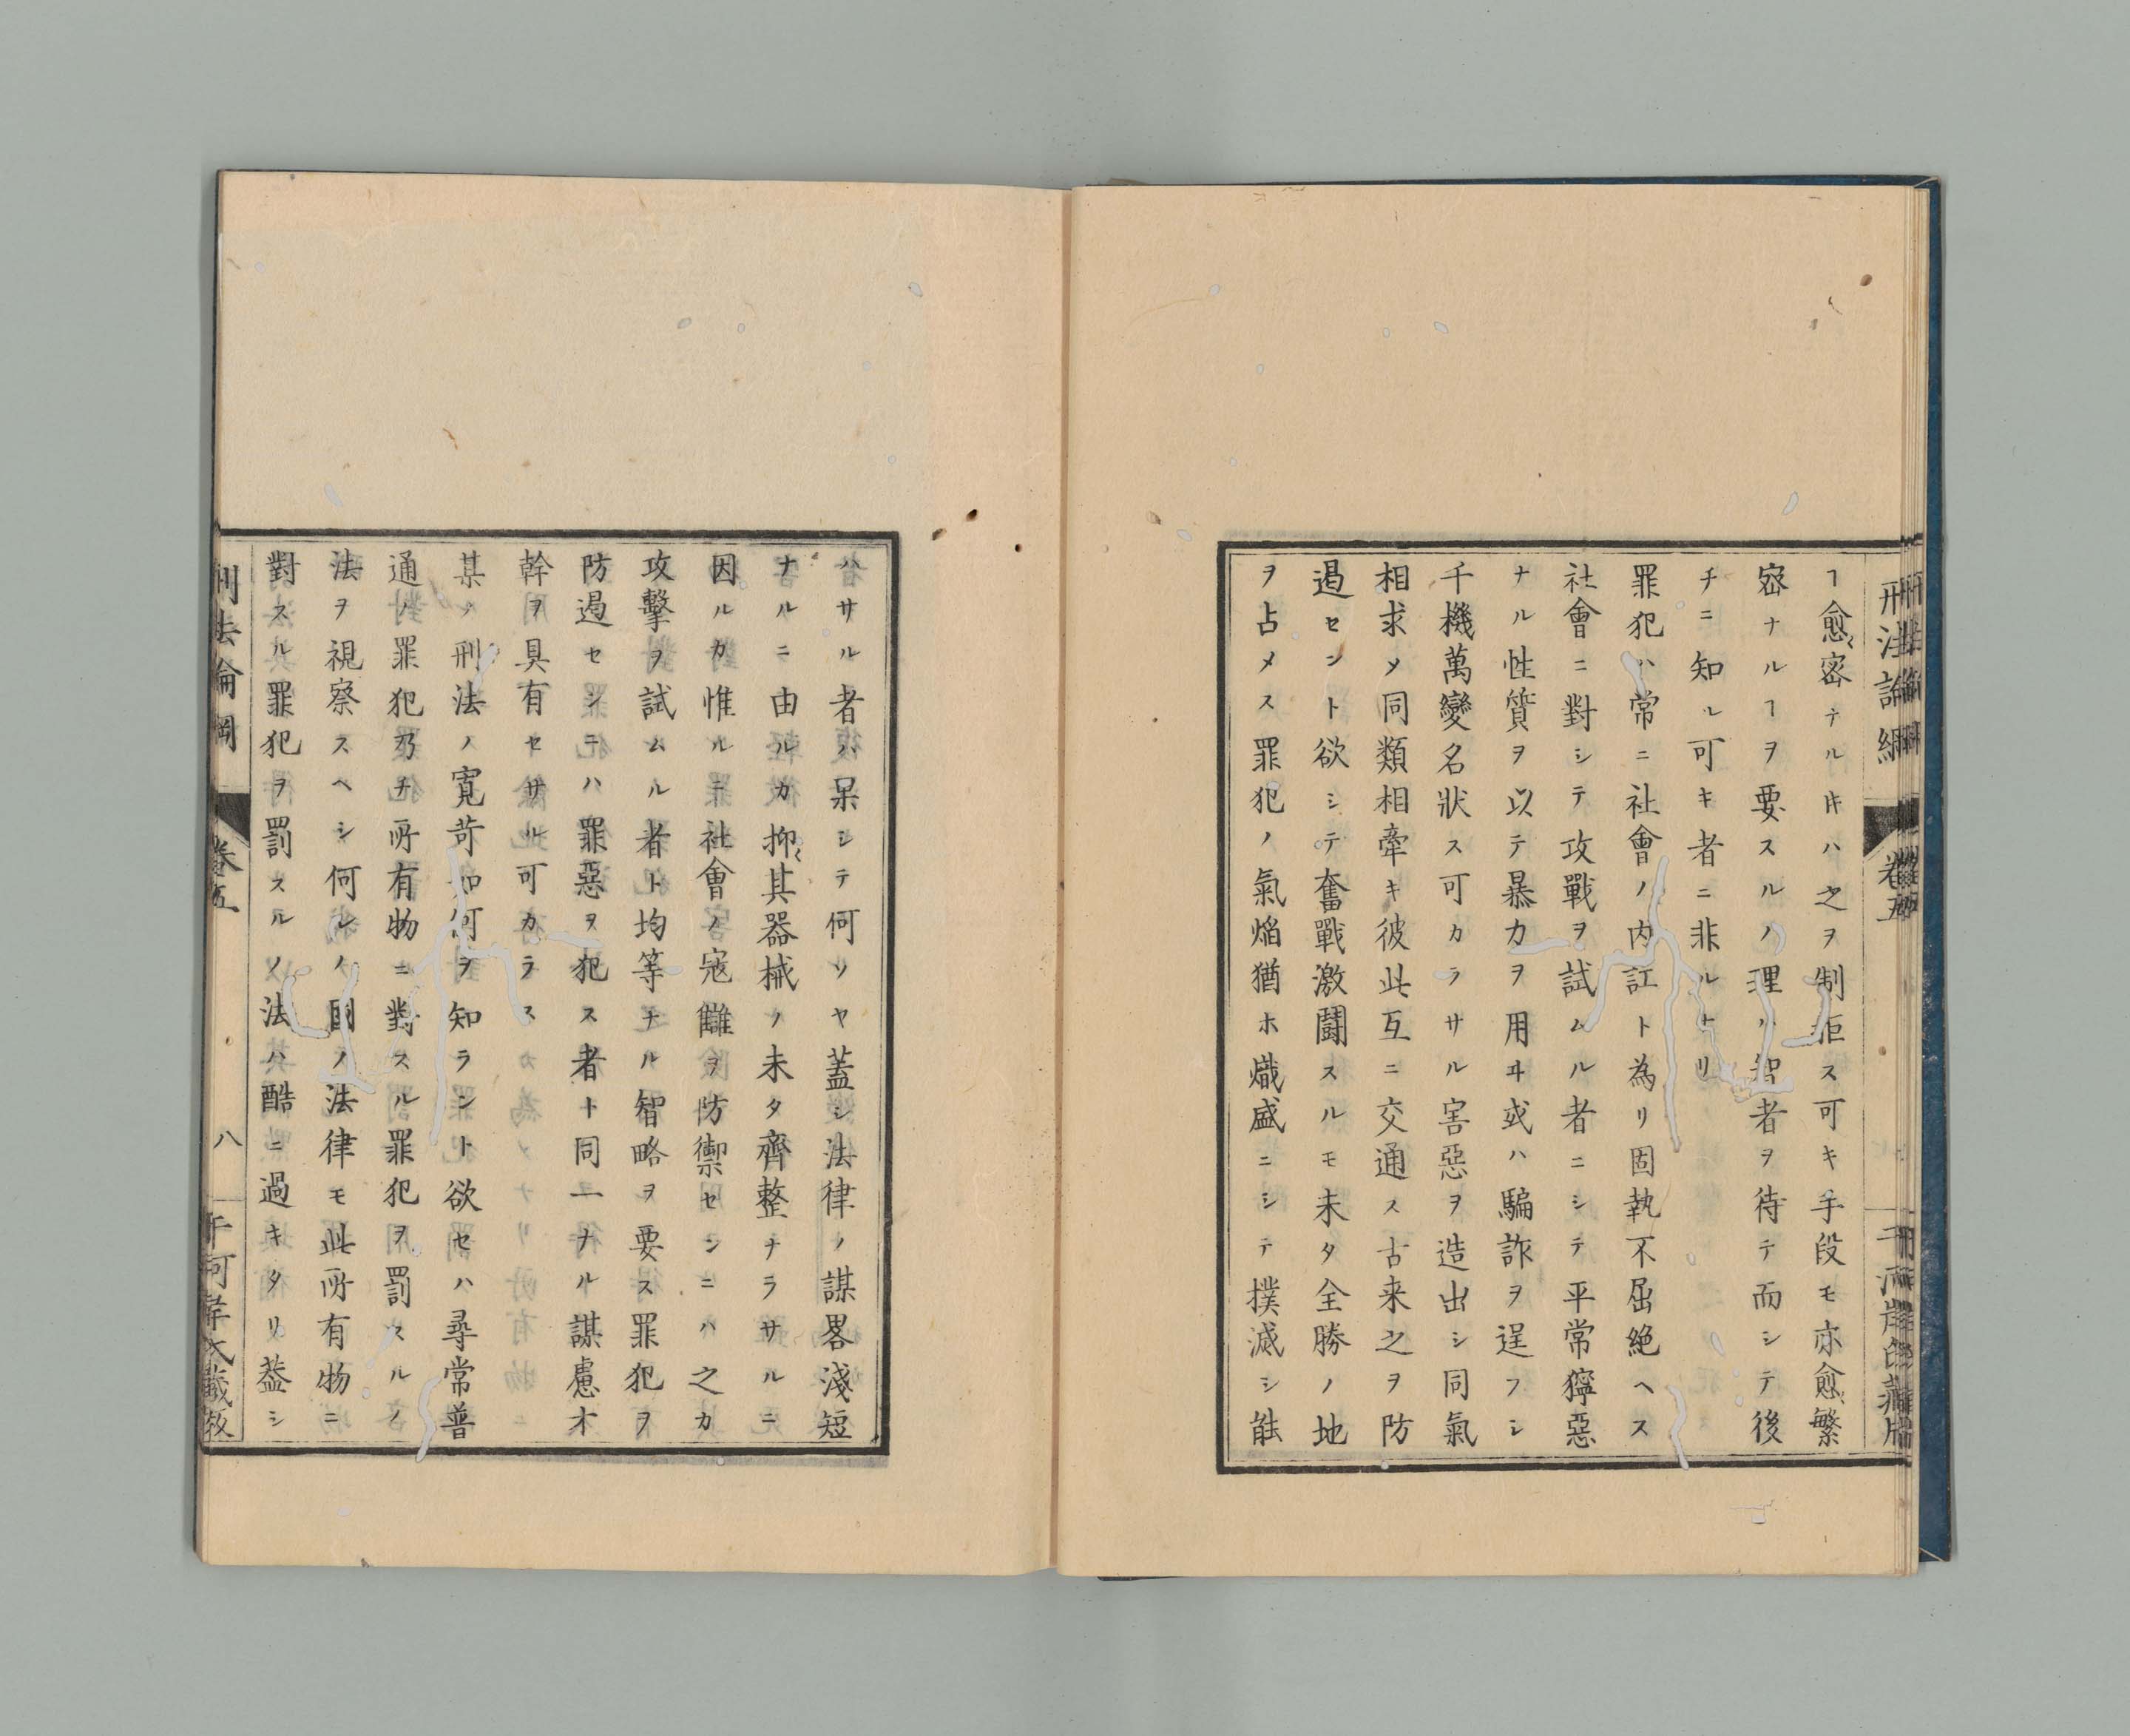 刑法論綱
卷五
ヿ愈〻密ナルㇳキハ之ヲ制拒ス可キ手段モ亦愈〻繁
密ナルヿヲ要スルノ理ハ智者ヲ待テ而シテ後
チニ知ル可キ者ニ非ルナリ
罪犯ハ常ニ社會ノ内訌ト為リ固執不屈絶ヘス
社會ニ對シテ攻戰ヲ試ムル者ニシテ平常獰惡
ナル性質ヲ以テ暴力ヲ用ヰ或ハ騙詐ヲ逞フシ
千機萬變名狀ス可カラサル害惡ヲ造出シ同氣
相求メ同類相牽キ彼此互ニ交通ス古来之ヲ防
遏セント欲シテ奮戰激鬪スルモ未タ全勝ノ地
ヲ占メス罪犯ノ氣焔猶ホ熾盛ニシテ撲滅シ能
ハサル者ハ果シテ何ソヤ蓋シ法律ノ謀畧淺短
ナルニ由ルカ抑〻其器械ノ未タ齊整ナラサルニ
因ルカ惟ルニ社會ノ寇讎ヲ防禦センニハ之カ
攻擊ヲ試ムル者ト均等ナル智略ヲ要ス罪犯ヲ
防遏センニハ罪惡ヲ犯ス者ト同一ナル謀慮才
幹ヲ具有セサル可カラス
某ノ刑法ノ寬苛如何ヲ知ラント欲セハ尋常普
通ノ罪犯乃チ所有物ニ對スル罪犯ヲ罰スルノ
法ヲ視察スヘシ何レノ國ノ法律モ此所有物ニ
對スル罪犯ヲ罰スルノ法ハ酷ニ過キタリ蓋シ
刑法論綱
卷五
八